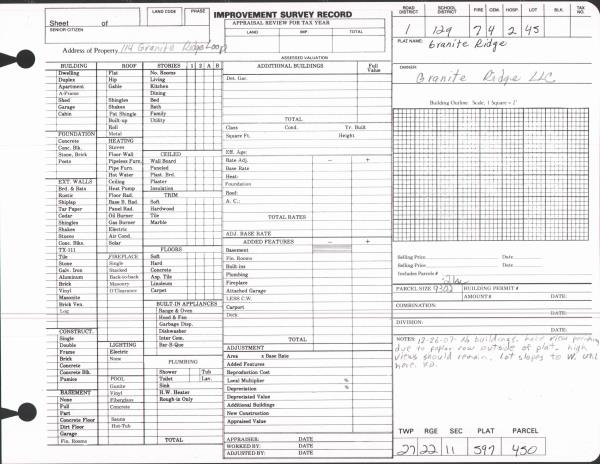 IMPROVEMENT SURVEY RECORD
Sheet of
SENIOR CITIZEN
LAND CODE
PHASE
APPRAISAL REVIEW FOR TAX YEAR
LAND IMP. TOTAL
Address of Property 114 Granite Ridge Loop
ASSESSED VALUATION
ROAD DISTRICT SCHOOL DISTRICT FIRE CEM. HOSP. LOT BLK. TAX NO.
1 129 7 4 2 45
PLAT NAME:
Granite Ridge
OWNER:
Granite Ridge LLC
Building Outline: Scale, 1 Square = 2'
BUILDING ROOF STORIES 1 2 A B
Dwelling Flat No. Rooms
Duplex Hip Living
Apartment Gable Kitchen
A-Frame Dining
Shed Shingles Bed
Garage Shakes Bath
Cabin Pat Shingle Family
Built-up Utility
Roll
FOUNDATION Metal
Concrete HEATING
Conc. Blk. Stoves CEILED
Stone, Brick Floor Wall Wall Board
Posts Pipeless Furn. Plasterd
Pipe Furn. Plast. Brd.
Hot Water Plaster
EXT. WALLS Ceiling
Brd. & Bats Heat Pump Insulation
Rustic Floor Rad. TRIM
Shiplap Base B. Rad. Soft
Tar Paper Panel Rad. Hardwood
Cedar Oil Burner Tile
Shingles Gas Burner Marble
Shakes Electric
Stucco Air Cond.
Conc. Blks. Solar
TX-111 FLOORS
Tile FIREPLACE Soft
Stone Single Hard
Galv. Iron Stacked Concrete
Aluminum Back-to-back Asp. Tile
Brick Masonry Linoleum
Vinyl O'Clearance Carpet
Masonite
Brick Ven. BUILT-IN APPLIANCES
Log Range & Oven
Hood & Fan
CONSTRUCT. Garbage Disp.
Single Dishwasher
Double LIGHTING Inter Com.
Frame Electric Bar-B-Que
Brick None
Concrete PLUMBING
Concrete Blk. Shower Tub
Pumice POOL Toilet Lav.
Gunite Sink
BASEMENT Vinyl H.W. Heater
None Fiberglass Rough-in Only
Full Concrete
Part
Concrete Floor Sauna
Dirt Floor Hot-Tub
Garage
Fin. Rooms TOTAL
ADDITIONAL BUILDINGS Full Value
Det. Gar:
TOTAL
Class Cond. Yr. Built
Square Ft. Height
Eff. Age:
Rate Adj. - +
Base Rate
Heat:
Foundation
Roof:
A. C.:
TOTAL RATES
ADJ. BASE RATE
ADDED FEATURES - +
Basement
Fin. Rooms
Built-ins
Plumbing
Fireplace
Attached Garage
LESS C.W.
Carport
Deck
TOTAL
ADJUSTMENT
Area x Base Rate
Added Features
Reproduction Cost
Local Multiplier %
Depreciation %
Depreciated Value
Additional Buildings
New Construction
Appraised Value
APPRAISER: DATE
WORKED BY: DATE
ADJUSTED BY: DATE
Selling Price Date:
Selling Price Date:
Includes Parcels #
PARCEL SIZE BUILDING PERMIT #
AMOUNT # DATE:
COMBINATION:
DATE:
DIVISION:
DATE:
NOTES: 12-26-07 No buildings, have view
due to poplar row outside of plat. high
views should remain. Lot slopes to W. Util
here.
TWP RGE SEC PLAT PARCEL
27 22 11 597 450